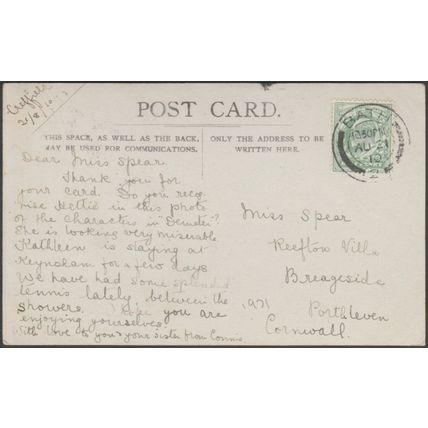 Creffield
21/8/10
POST CARD.
THIS SPACE, AS WELL AS THE BACK,
MAY BE USED FOR COMMUNICATIONS.
ONLY THE ADDRESS TO BE
WRITTEN HERE.
BATH
12.30PM
AU 21
10
2
Dear Miss Spear.
Thank you for
your card. Do you recog
nise Hettie in this photo
of the characters in "Demeter"?
She is looking very miserable.
Kathleen is staying at
Keynsham for a few days
We have had some splendid
tennis lately, between the
showers. I hope you are
enjoying yourselves.
With love to you & your sister from Connie.
Miss Spear
Reefton Villa
Breageside
Porthleven
Cornwall.
1971